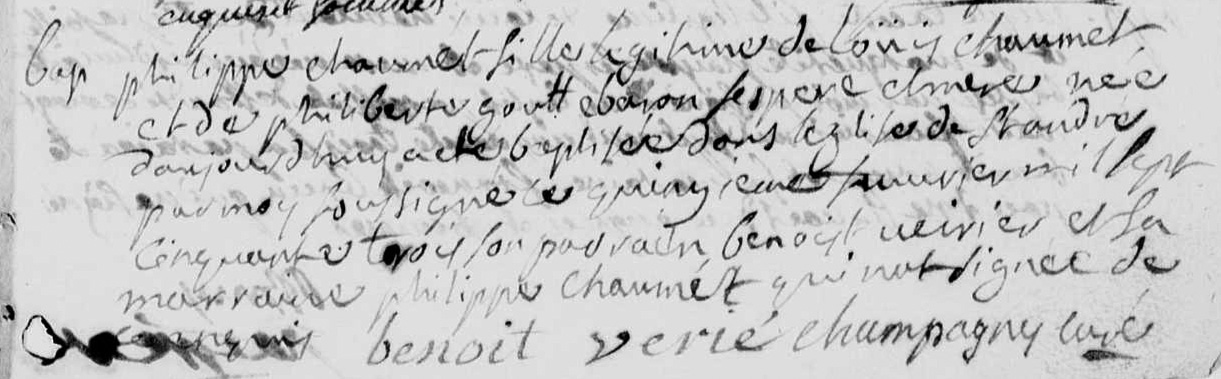 enquis et sommés
bap philippe chaumet fille legitime de Loüis chaumet
et de philiberte gouttebaron ses pere et mere née
daujourdhuy a eté baptisée dans leglise de St andré
par moy soussigné le quinzieme feuurier mil sept
cinquante trois son parrain benoist ueirier et sa
marraine philippe chaumét qui nat signée de
enquis benoit verié champagny curé